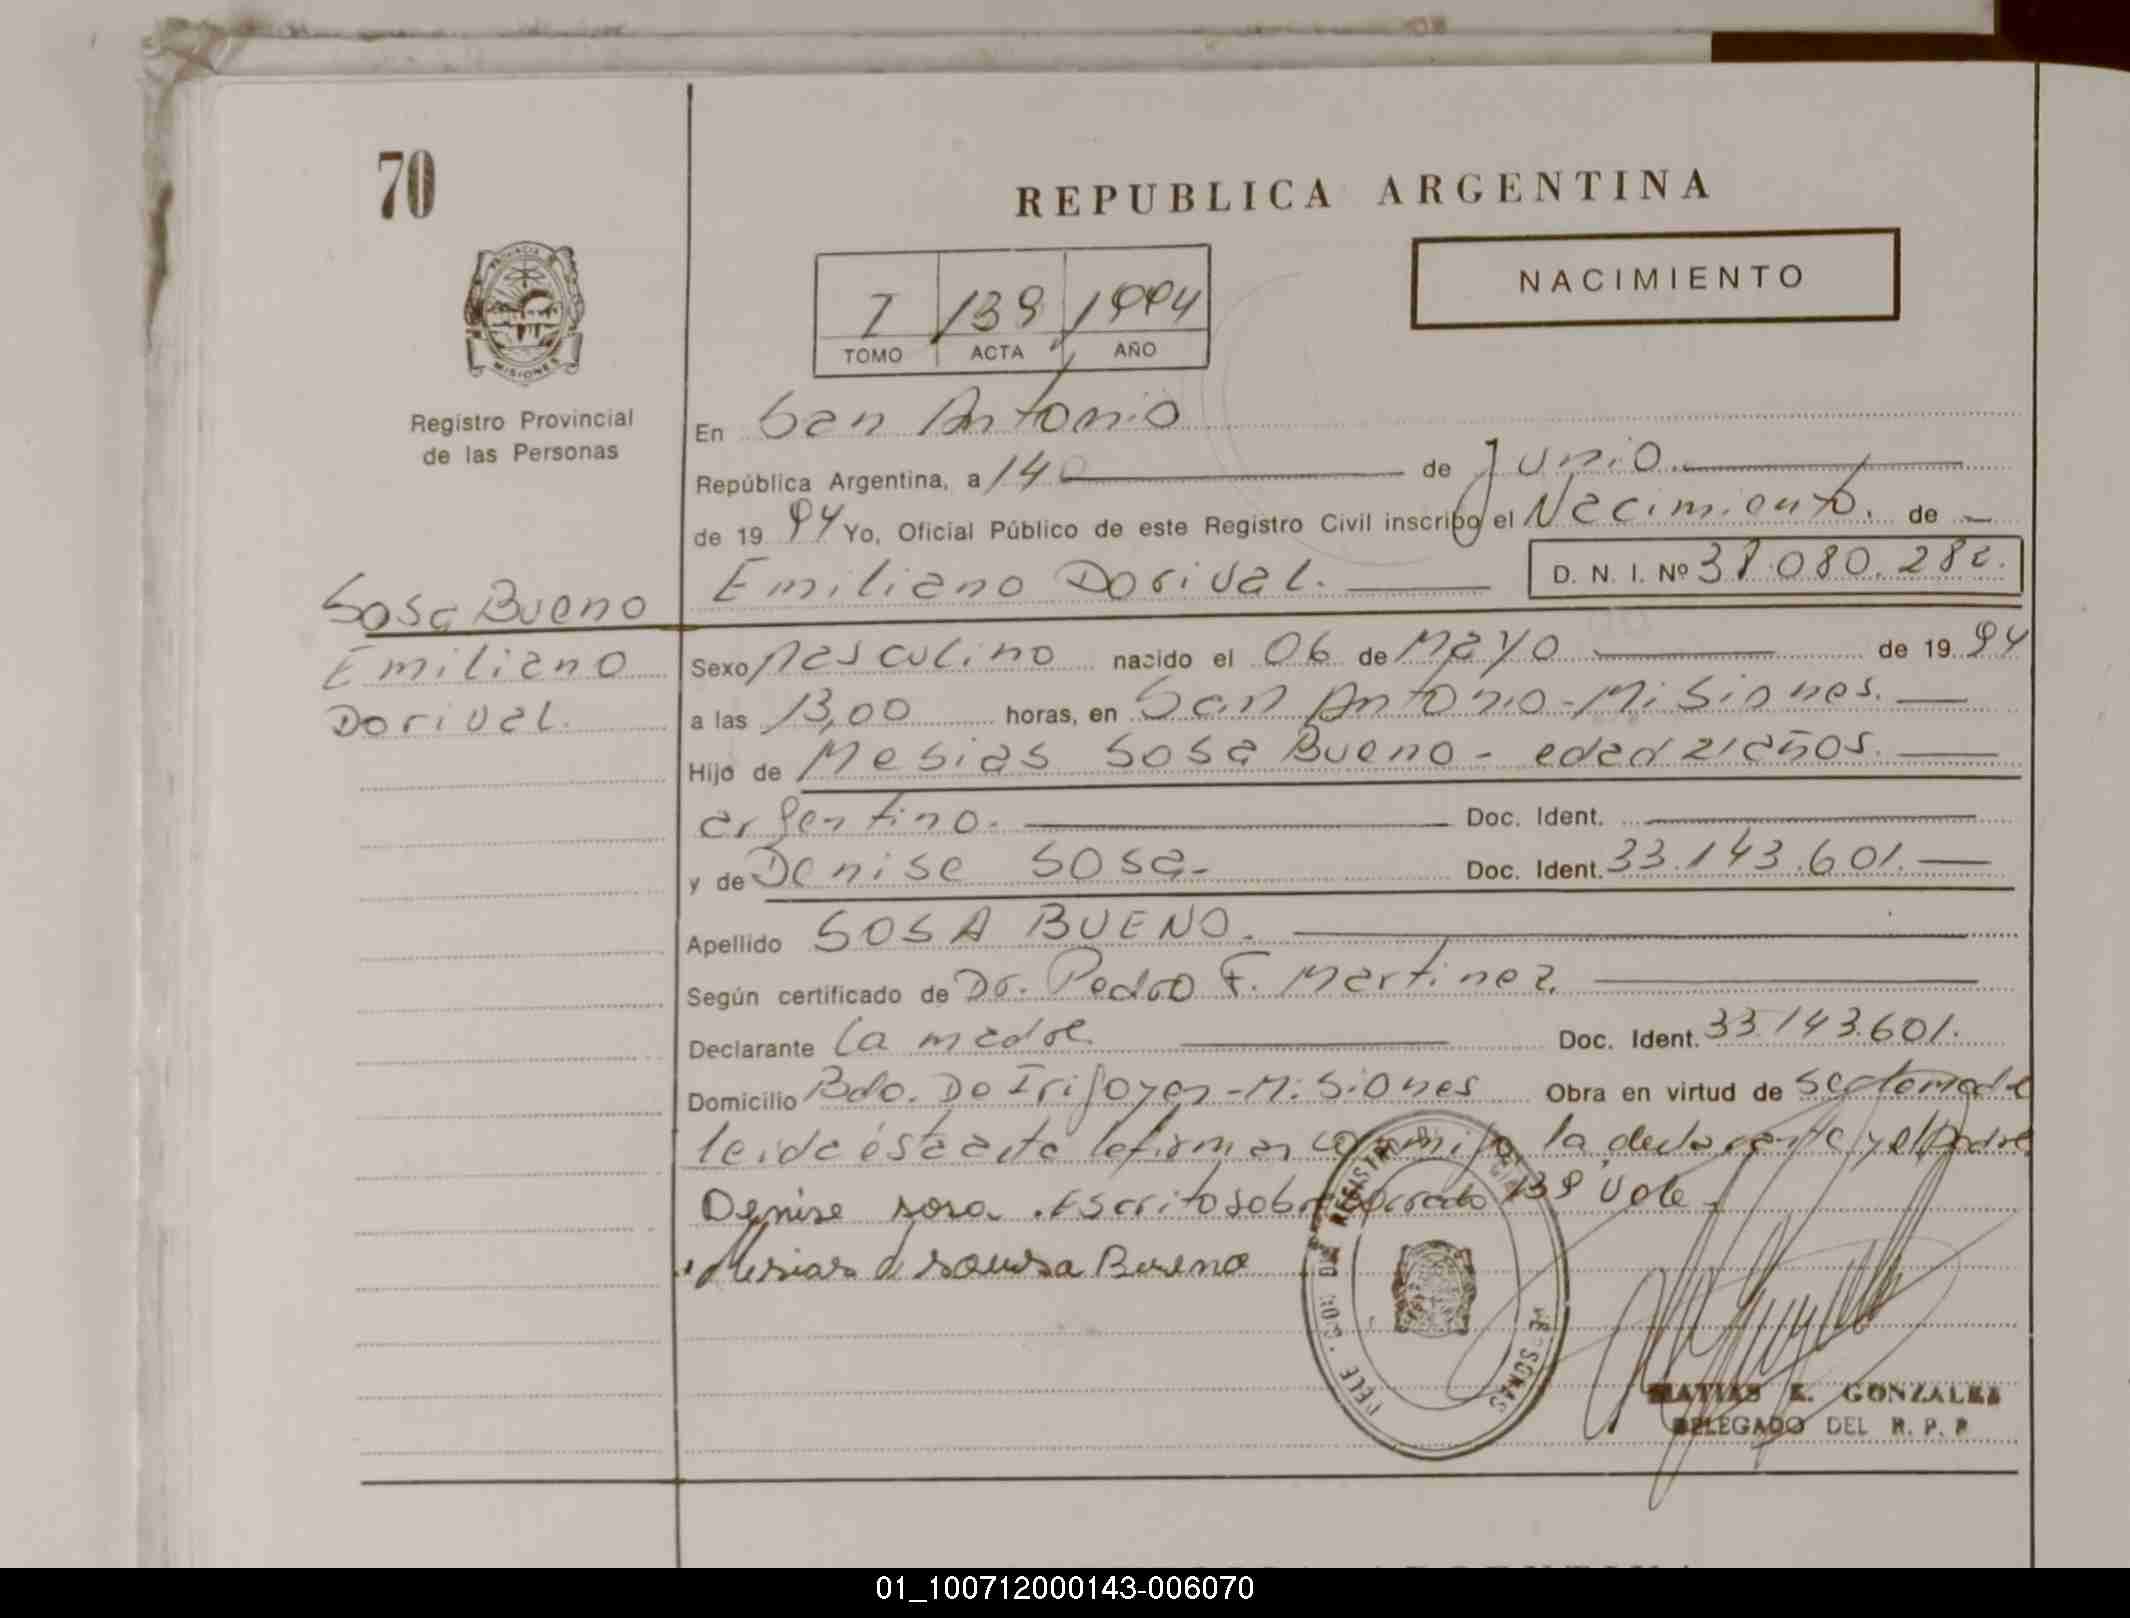 70
REPUBLICA ARGENTINA
NACIMIENTO
I 139 1994
TOMO ACTA AÑO
PROVINCIA
MISIONES
Registro Provincial
de las Personas
En San Antonio
República Argentina, a 14 de Junio.
de 19 94 Yo, Oficial Público de este Registro Civil inscribo el Nacimiento. de
Emiliano Dorival. D. N. I. Nº 38.080.282.
Sosa Bueno
Emiliano
Dorival.
Sexo Masculino nacido el 06 de Mayo de 19 94
a las 13,00 horas, en San Antonio - Misiones.
Hijo de Mesias Sosa Bueno - edad 21 años.
argentino. Doc. Ident.
y de Denise Sosa - Doc. Ident. 33.143.601.
Apellido SOSA BUENO.
Según certificado de Dr. Pedro F. Martinez.
Declarante La madre. Doc. Ident. 33.143.601.
Domicilio Bdo. De Irigoyen - Misiones Obra en virtud de
leida ésta acta la firman conmigo la declarante y el Padre
Denise sosa . Escrito sobre borrado 139 Vale -
Mesias d sousa Bueno
MATIAS E. GONZALEZ
DELEGADO DEL R. P. P
01_100712000143-006070